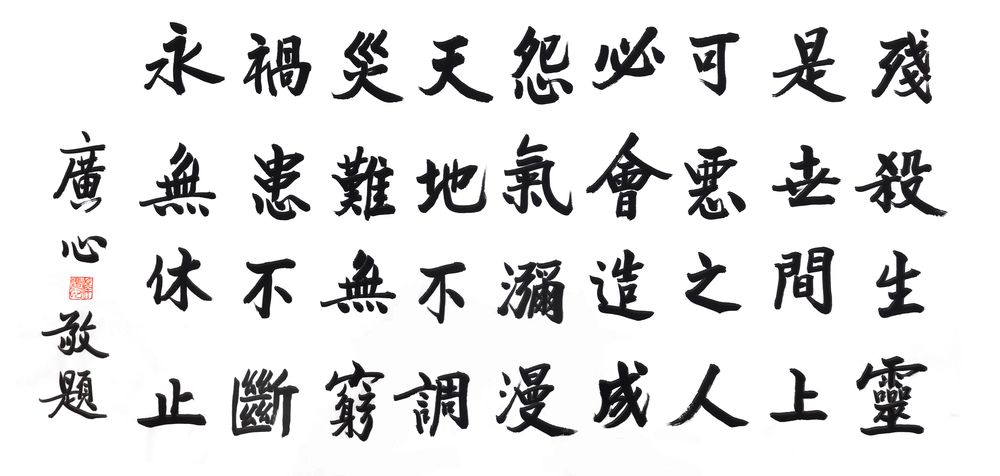 殘殺生靈
是世間上
可惡之人
必會造成
怨氣瀰漫
天地不調
災難無窮
禍患不斷
永無休止
廣心敬題